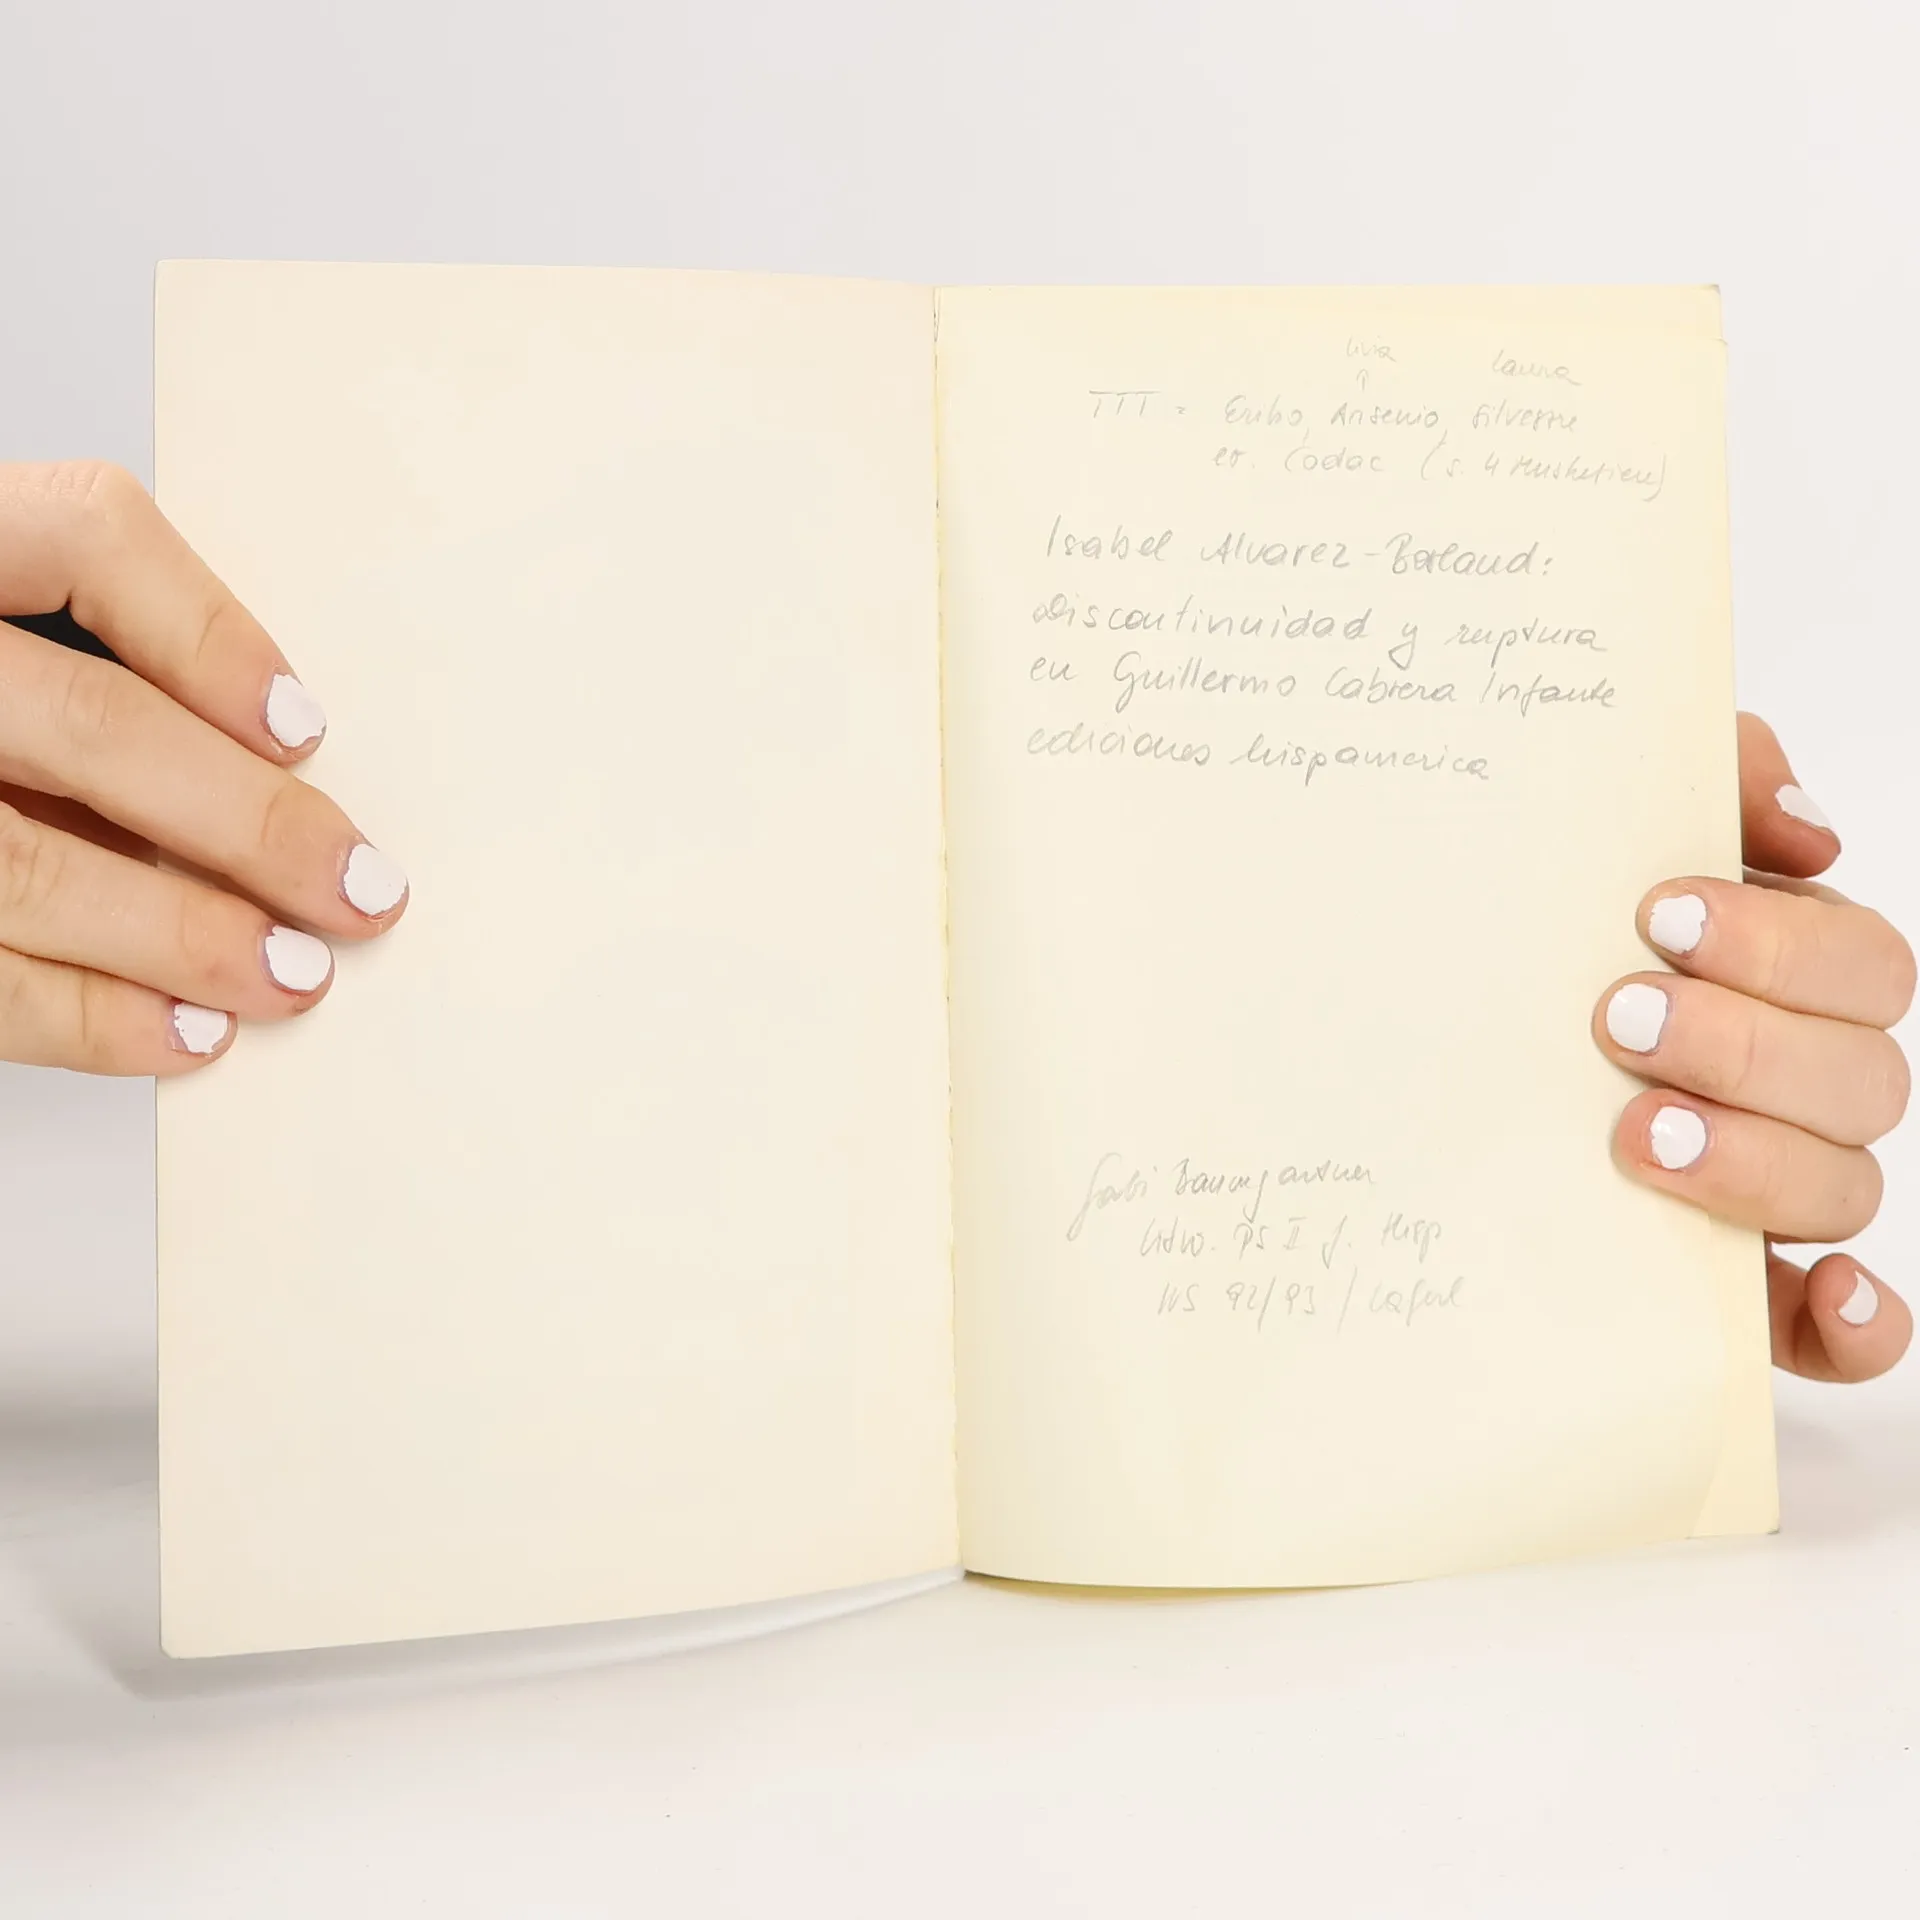 Livia Laura
↑
TTT = Eribo, Arsenio, Silvestre
ev. Codac (s. 4 Musketiere)
Isabel Alvarez-Borland:
Discontinuidad y ruptura
en Guillermo Cabrera Infante
ediciones hispamerica
Gabi Baumgartner
Litw. PS II f. Hisp
WS 92/93 /